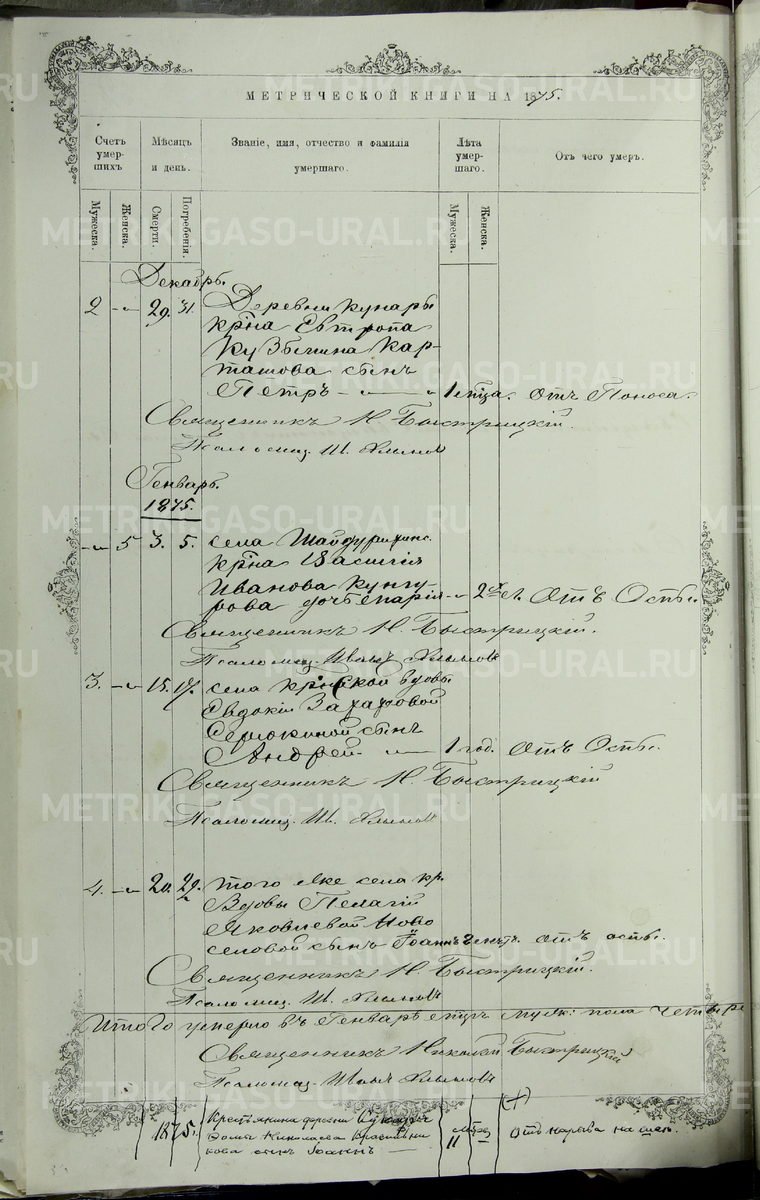 МЕТРИЧЕСКОЙ КНИГИ НА 1875.
Счетъ умершихъ
Мѣсяцъ и день.
Званіе, имя, отчество и фамилія умершаго.
Лѣта умершаго.
Отъ чего умеръ.
Мужеска.
Женска.
Смерти.
Погребенія.
Мужеска.
Женска.
Декабрь.
2 29. 31. Деревни Кунары
крⷭна Евтропа
Кузьмина Кар-
ташова сынъ
Петръ 1 отъ Поноса.
Священникъ Н. Быстрицкій.
Псаломщ. Ив.
Генварь.
1875.
5 3. 5. села Шайдурихинс.
крⷭна Василія
Иванова Кунгу-
рова дочь Марія 2 отъ Оспы.
Священникъ Н. Быстрицкій.
Псаломщ. Иванъ
3. 15. 17. села крⷭнской вдовы
Евдокіи Захаровой
сынъ
Андрей 1 год. отъ Оспы.
Священникъ Н. Быстрицкій
Псаломщ. Ив.
4. 20. 22. того же села кр.
Вдовы Пелагіи
Яковлевой Ново
селовой сынъ Іоаннъ отъ оспы.
Священникъ Н. Быстрицкій.
Псаломщ. Ив.
Итого умерло въ Генварѣ муж: пола четыре
Священникъ Быстрицкій
Псаломщ. Иванъ
(+)
1875. Крестьянина деревни
Николаева
сынъ Іоаннъ 11 отъ нарыва на шеѣ.
METRIKI.GASO-URAL.RU